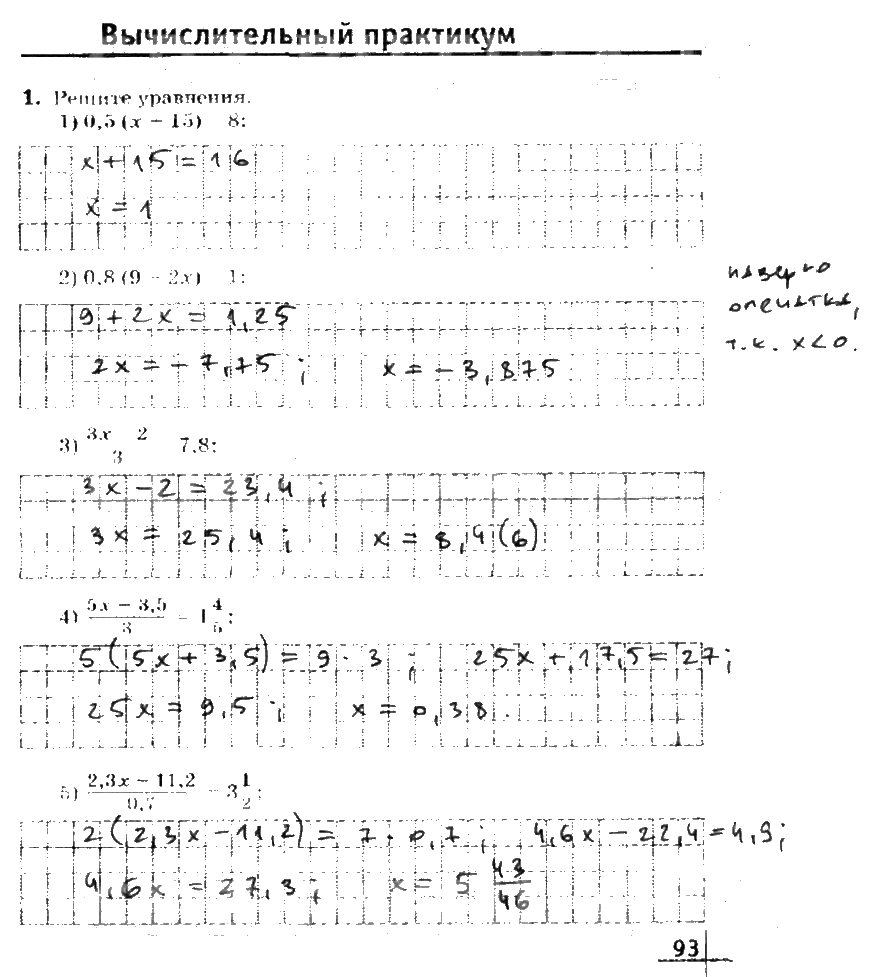 Вычислительный практикум
1. Решите уравнения.
1) 0,5 (x − 15) 8;
x + 15 = 16
x = 1
2) 0,8 (9 − 2x) 1;
9 + 2x = 1,25
2x = − 7,75 ; x = − 3,875
наверно
опечатка,
т.к. x < 0.
3) 3x 2 / 3 7,8;
3x − 2 = 23,4 ;
3x = 25,4 ; x = 8,4(6)
4) 5x − 3,5 / 3 = 1 4/5;
5(5x + 3,5) = 9 · 3 ; 25x + 17,5 = 27;
25x = 9,5 ; x = 0,38.
5) 2,3x − 11,2 / 0,7 = 3 1/2;
2(2,3x − 11,2) = 7 · 0,7 ; 4,6x − 22,4 = 4,9;
4,6x = 27,3 ; x = 5 43/46
93